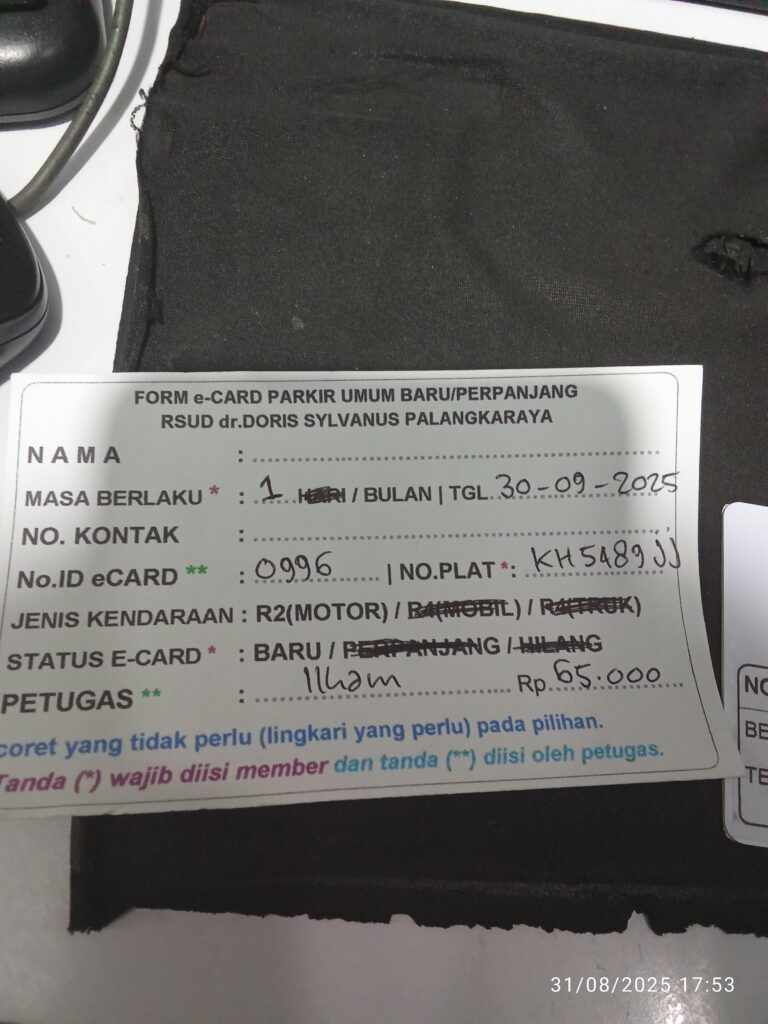 FORM e-CARD PARKIR UMUM BARU/PERPANJANG
RSUD dr.DORIS SYLVANUS PALANGKARAYA
NAMA :
MASA BERLAKU * : 1 HARI / BULAN | TGL 30-09-2025
NO. KONTAK :
No.ID eCARD ** : 0996 | NO.PLAT *: KH 5489 JJ
JENIS KENDARAAN : R2(MOTOR) / R4(MOBIL) / R4(TRUK)
STATUS E-CARD * : BARU / PERPANJANG / HILANG
PETUGAS ** : Ilham Rp 65.000
coret yang tidak perlu (lingkari yang perlu) pada pilihan.
Tanda (*) wajib diisi member dan tanda (**) diisi oleh petugas.
NO
BE
TE
31/08/2025 17:53